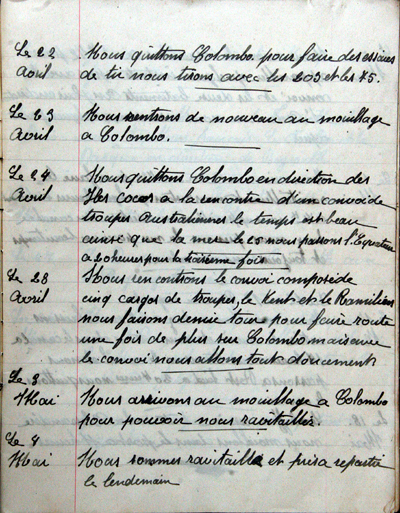 Le 22 Nous quittons Colombo pour faire des essais
Avril de tir nous tirons avec les 203 et les 75.
Le 23 Nous rentrons de nouveau au mouillage
Avril a Colombo.
Le 24 Nous quittons Colombo en direction des
Avril Iles cocos à la rencontre d'un convoi de
troupes Australiennes le temps est beau
ainsi que la mer le 25 nous passons l'Equateur
a 20 heures pour la troisième fois
Le 28 Nous rencontrons le convoi composé de
Avril cinq cargos de troupes, le Kent et le Ramillies
nous faisons demie tour pour faire route
une fois de plus sur Colombo mais avec
le convoi nous allons tout doucement
Le 3
Mai Nous arrivons au mouillage a Colombo
pour pouvoir nous ravitailler.
Le 4
Mai Nous sommes ravitaillé et pris a repartir
le lendemain